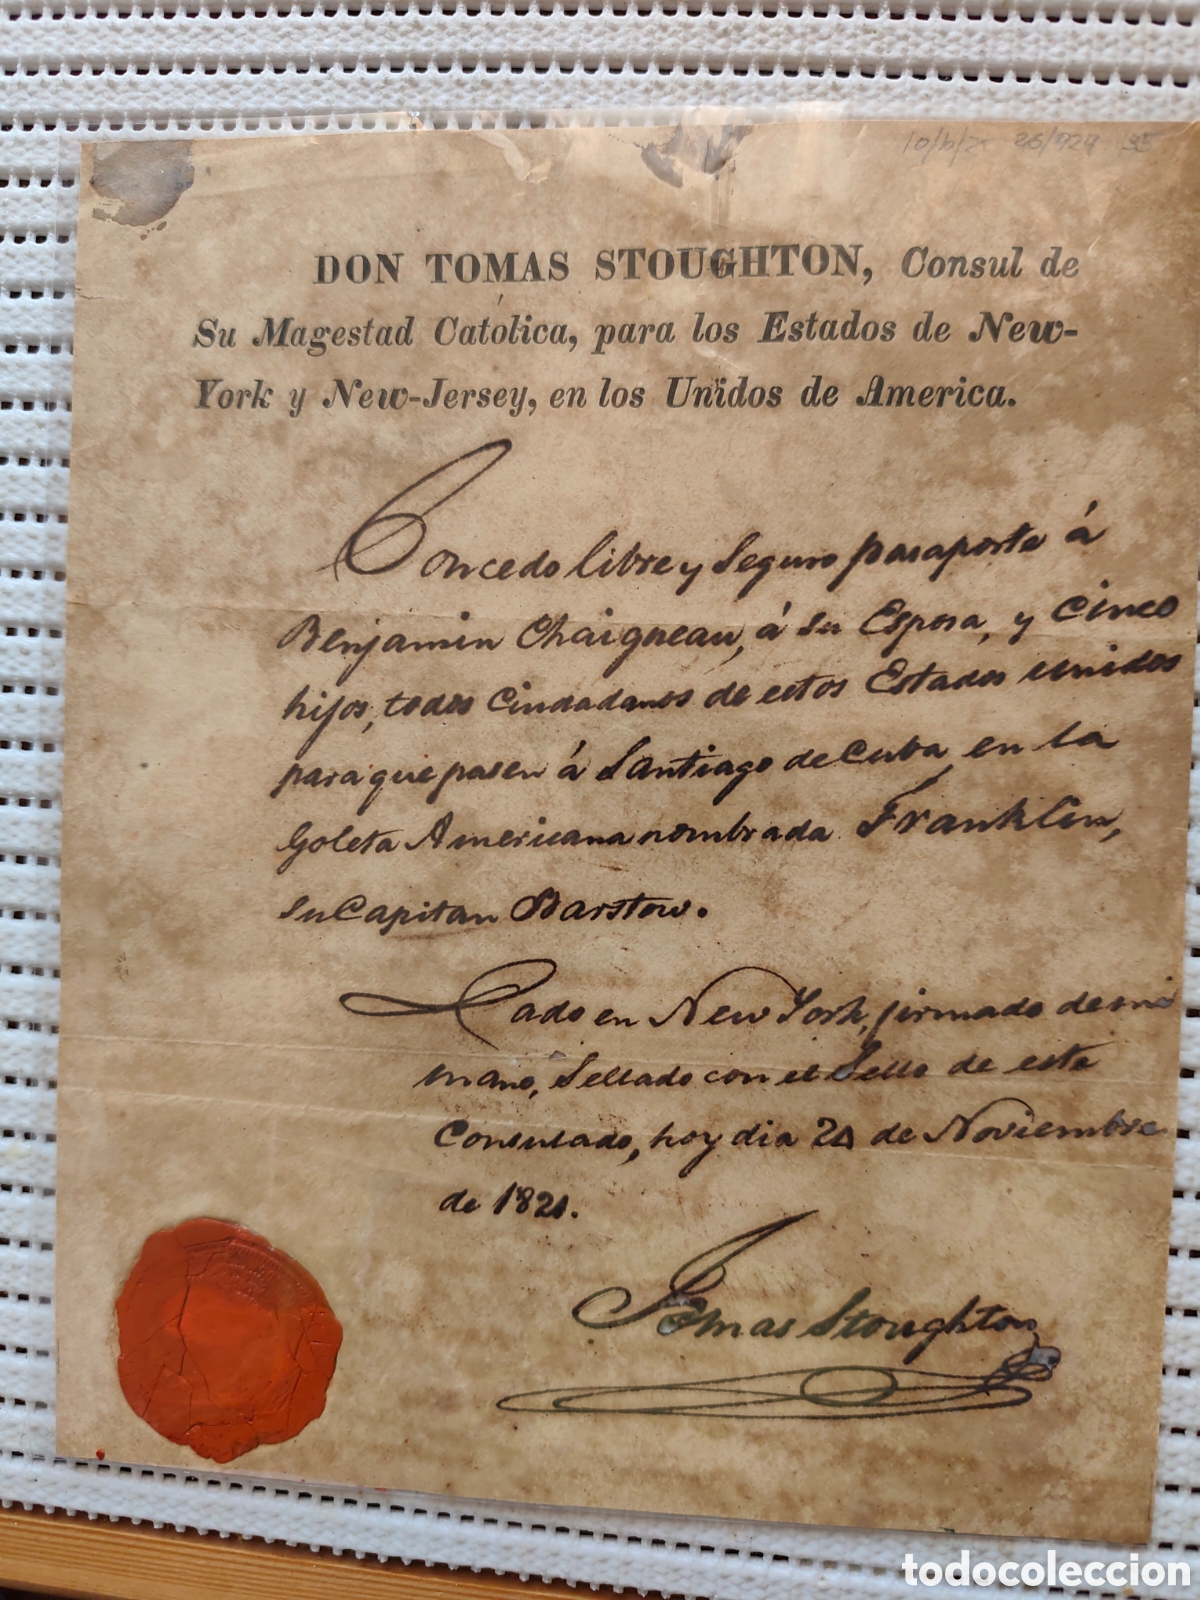 DON TOMAS STOUGHTON, Consul de
Su Magestad Católica, para los Estados de New-
York y New-Jersey, en los Unidos de America.
Concedo libre y Seguro pasaporte á
Benjamin Chaigneau, á su Esposa, y Cinco
hijos, todos Ciudadanos de estos Estados unidos
para que pasen á Santiago de Cuba en la
Goleta Americana nombrada Franklin,
su Capitan Barstow.
Dado en New York, firmado de mi
mano, Sellado con el Sello de este
Consulado, hoy dia de Noviembre
de 1821.
Tomas Stoughton
todocoleccion